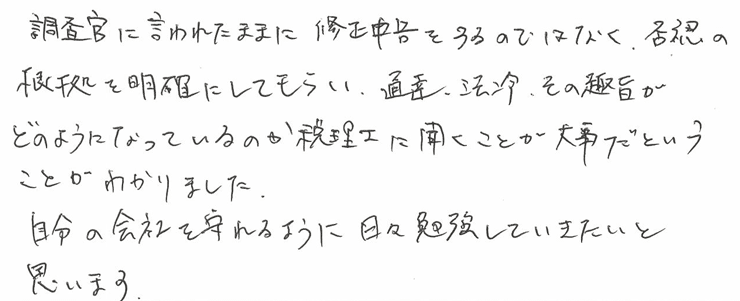 調査官に言われたままに修正申告をするのではなく、否認の
根拠を明確にしてもらい、通達、法令、その趣旨が
どのようになっているのか税理士に聞くことが大事だという
ことがわかりました。
自分の会社を守れるように日々勉強していきたいと
思います。